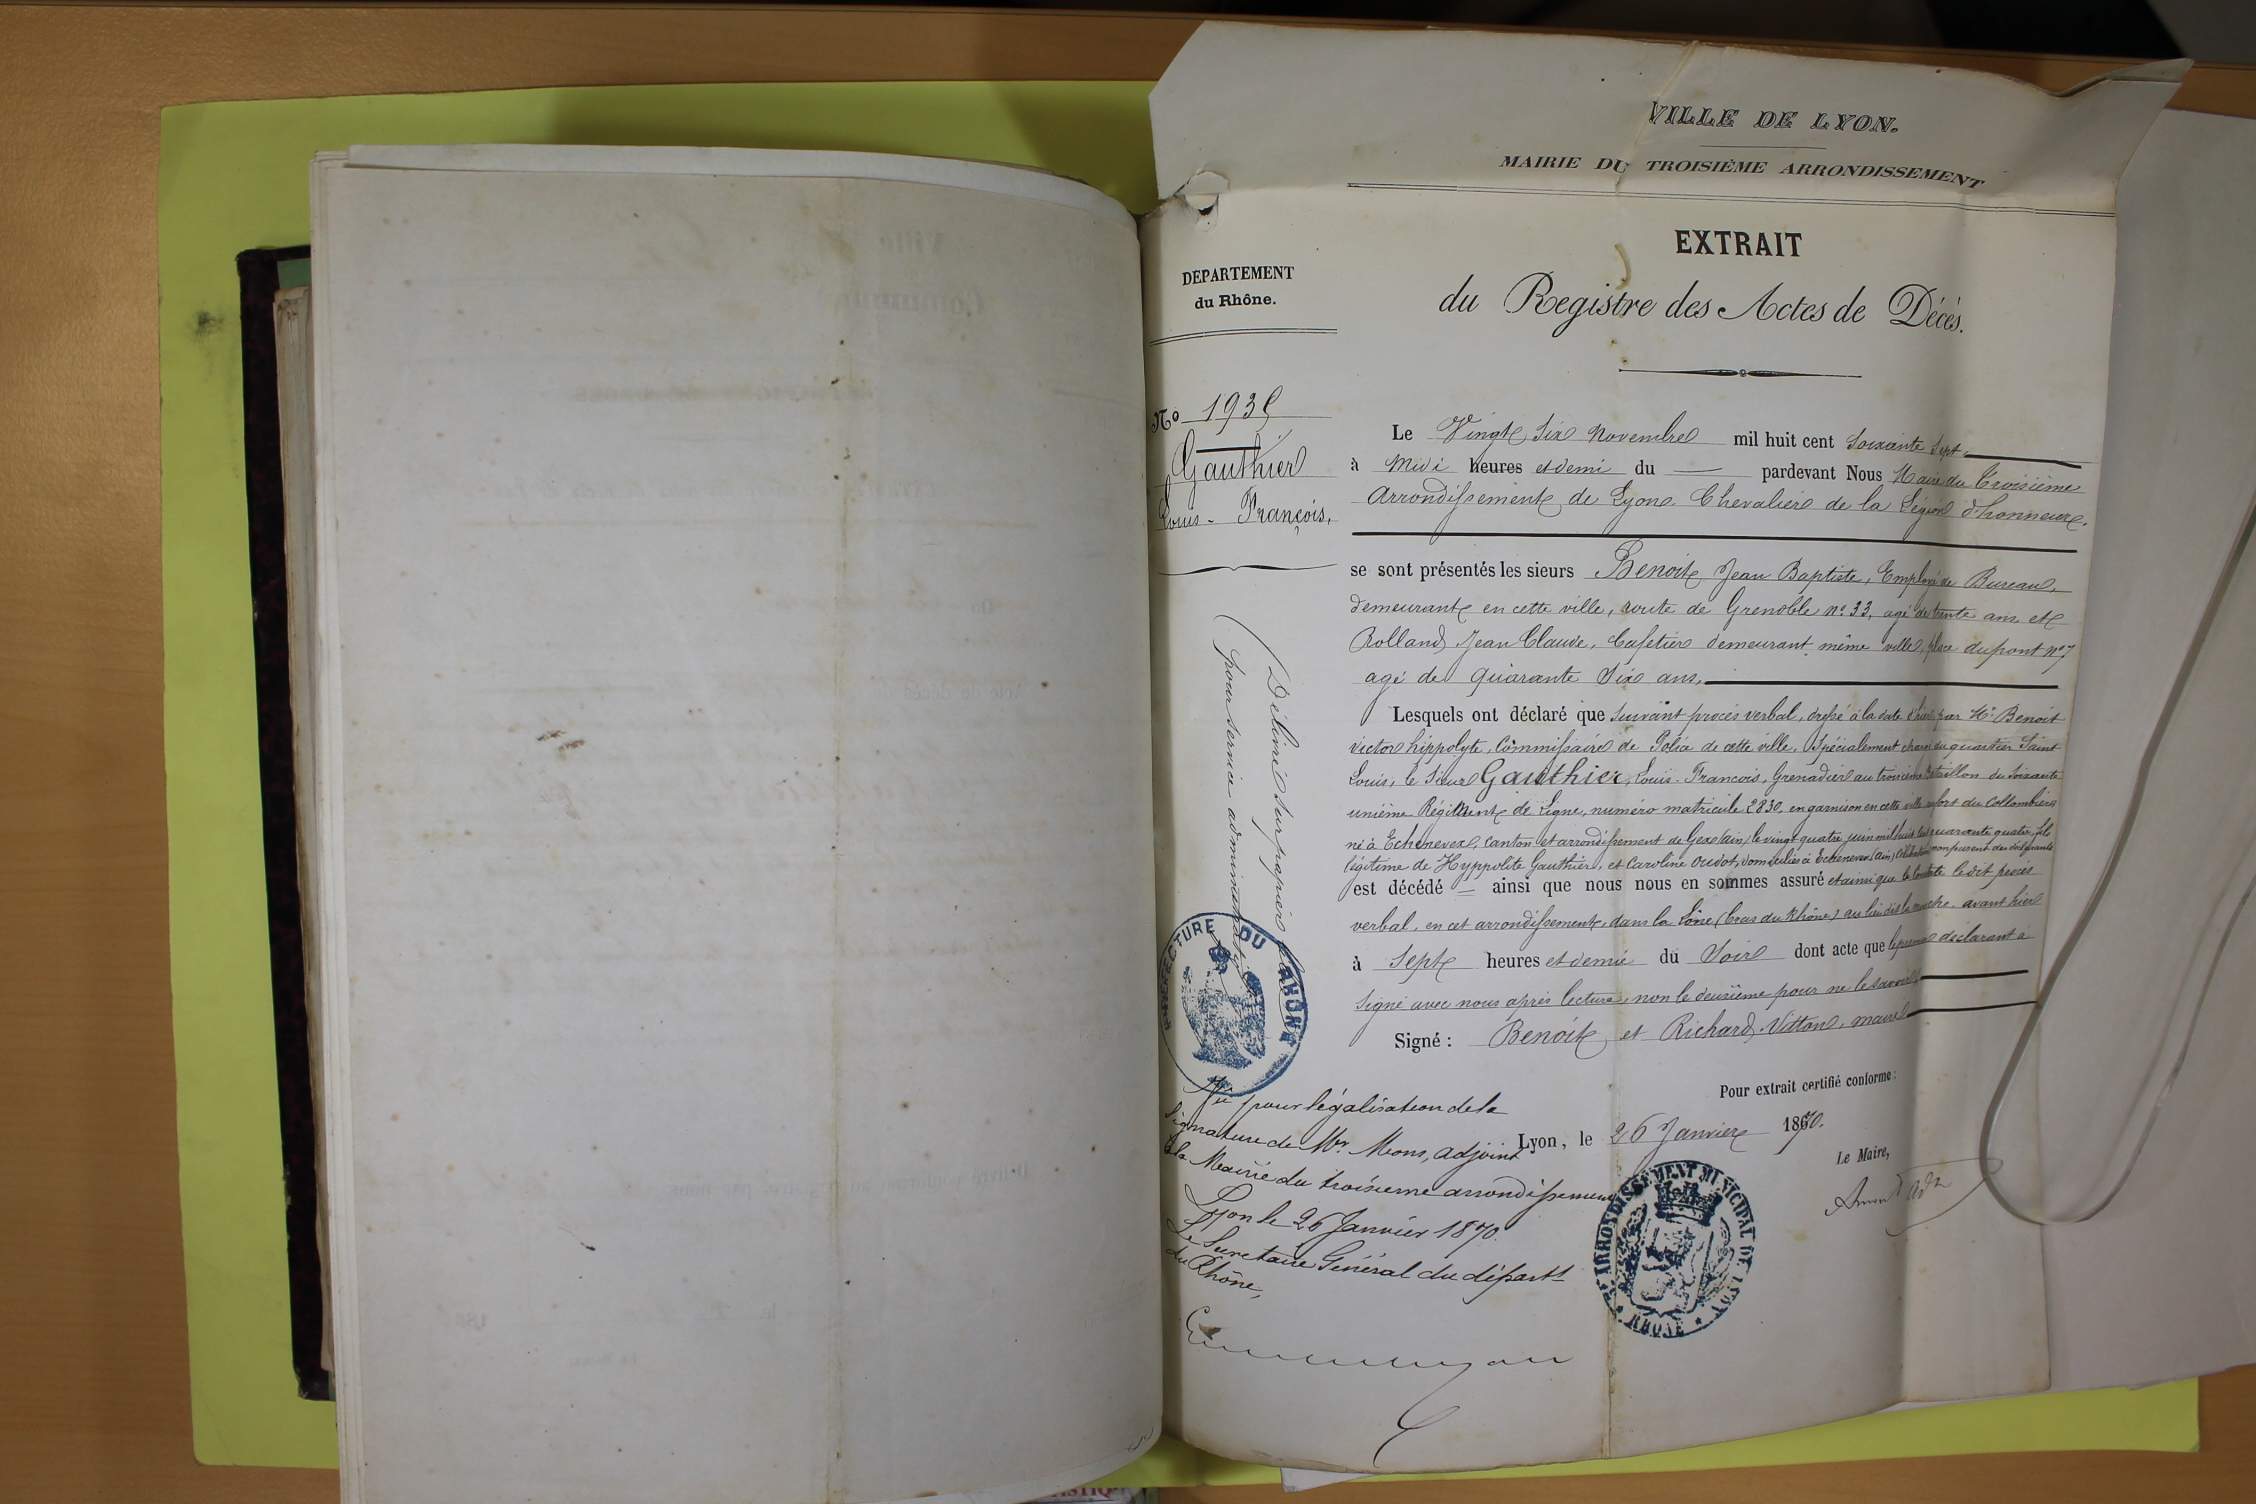 VILLE DE LYON.
MAIRIE DU TROISIÈME ARRONDISSEMENT
DEPARTEMENT
du Rhône.
EXTRAIT
du Registre des Actes de Décès.
No 1935
Gauthier
Louis-François,
Délivré sur papier
pour service administratif
Le Vingt Six Novembre mil huit cent Soixante Sept.
à Midi heures et demi du — pardevant Nous Maire du Troisième
Arrondissement de Lyon. Chevalier de la Légion d'honneur.
se sont présentés les sieurs Benoit Jean Baptiste, Employé de Bureau,
demeurant en cette ville, route de Grenoble no. 33, agé de trente ans et
Rolland Jean Claude, Cafetier demeurant même ville, place du pont no 7
agé de quarante Six ans,
Lesquels ont déclaré que Suivant procès verbal, dressé à la date d'hier par Mr Benoit
Victor hippolyte, Commissaire de Police de cette ville, Spécialement chargé du quartier Saint
Louis, le Sieur Gauthier, Louis-François, Grenadier au troisième Bataillon du Soixante
unième Régiment de Ligne, numéro matricule 2830, en garnison en cette ville au fort du Collombier
né à Echenevex, Canton et arrondissement de Gex (ain) le vingt quatre juin mil huit cent quarante quatre, fils
légitime de Hyppolite Gauthier, et Caroline Oudot, domiciliés à Echenevex (ain) Célibataire, non parent des déclarants
est décédé — ainsi que nous nous en sommes assuré et ainsi que le constate le dit procès
verbal, en cet arrondissement, dans la Lône (bras du Rhône) au lieu dit la mouche. avant hier
à Sept heures et demie du Soir dont acte que le premier déclarant a
Signé avec nous après lecture, non le deuxième pour ne le savoir.
Signé : Benoit et Richard Vitton, maire
Pour extrait certifié conforme :
Lyon, le 26 Janvier 1870.
Le Maire,
Adt
PRÉFECTURE DU RHÔNE
Vu pour légalisation de la
Signature de Mr. Mons, adjoint
à la Mairie du troisième arrondissement
Lyon le 26 Janvier 1870.
Le Secrétaire Général du départt
du Rhône,
3e ARRONDISSEMENT MUNICIPAL DE LYON
* RHONE *